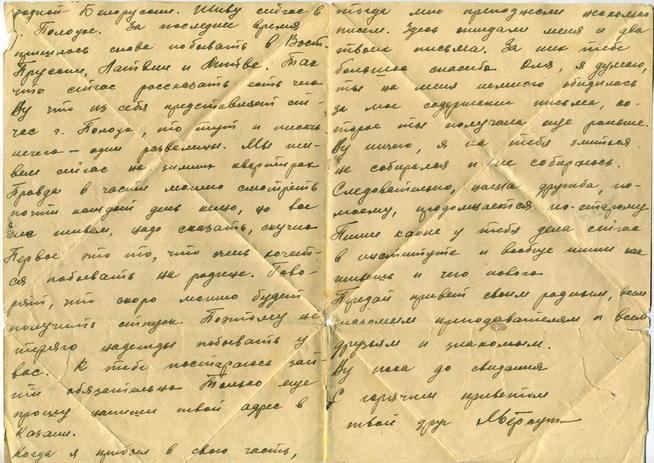 родной Белоруссии. Живу сейчас в
г. Полоцке. За последнее время
пришлось снова побывать в Вост.
Пруссии, Латвии и Литве. Так
что сейчас рассказать есть чего
Ну что из себя представляет сей-
час г. Полоцк, то тут и писать
нечего – одни развалины. Мы жи-
вем сейчас на зимних квартирах
Правда в части можно смотреть
почти каждый день кино, но все
живем, надо сказать, скучно
Первое это то, что очень хочет-
ся побывать на родине. Гово-
рят, что скоро можно будет
получить отпуск. Поэтому не
теряю надежды побывать у
вас. К тебе постараюсь зай-
ти обязательно Только еще
прошу напиши твой адрес в
Казани.
Когда я прибыл в свою часть,
тогда мне преподнесли несколько
писем. Здесь ожидали меня и два
твоих письма. За них тебе
большое спасибо Оля, я думаю,
ты на меня немного обиделась
за мое содержание письма, ко-
торое ты получила еще раньше.
Ну ничего, я на тебя злиться
не собирался и не собираюсь.
Следовательно, наша дружба, по-
моему, продолжается по-старому
Пиши какие у тебя дела сейчас
в институте и вообще пиши как
живешь и чего нового
Передай привет своим родным, всем
знакомым преподавателям и всем
друзьям и знакомым.
Ну пока до свидания
С горячим приветом
твой друг